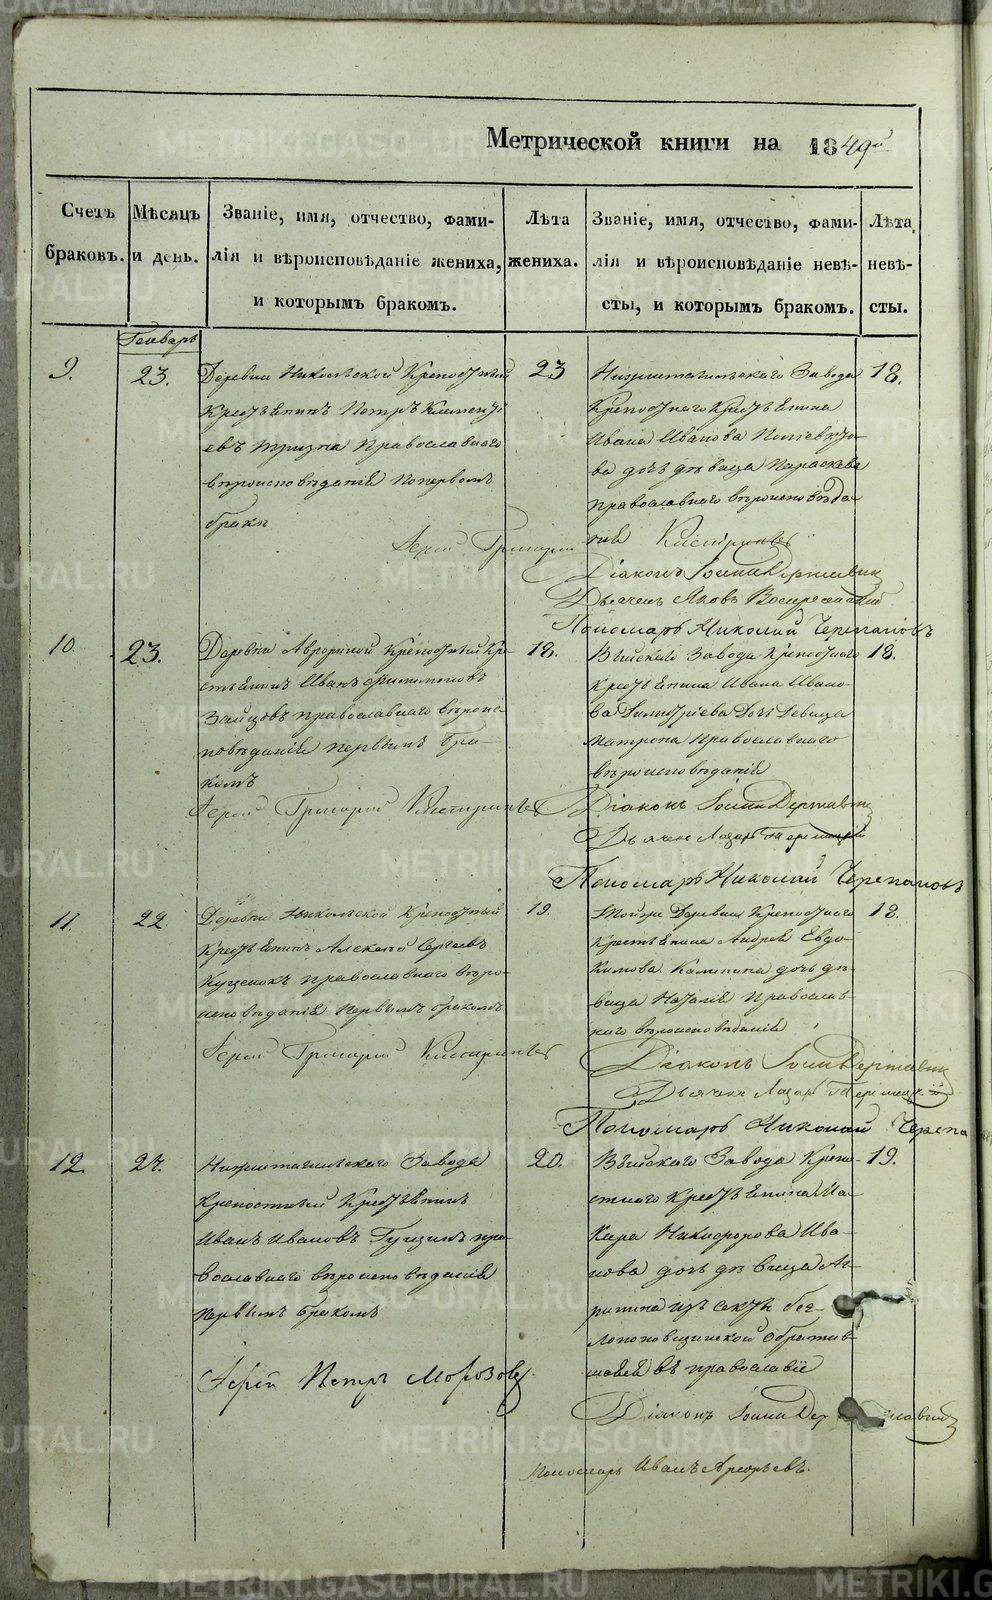 Метрической книги на 1849й
Счетъ браковъ.
Мѣсяцъ и день.
Званіе, имя, отчество, фами-
лія и вѣроисповѣданіе жениха,
и которымъ бракомъ.
Лѣта жениха.
Званіе, имя, отчество, фами-
лія и вѣроисповѣданіе невѣ-
сты, и которымъ бракомъ.
Лѣта невѣ-
сты.
Генварь
9.
23.
Деревни Никольской Крепостный
Крестьянинъ Петръ Клементь
евъ Тризна Православнаго
вѣроисповѣданія поpервомъ
браке
23
Нижнетагильскаго Завода
Крепостнаго Крестьянина
Ивана Иванова
ва дочь дѣвица Параскева
православнаго вѣроисповѣда
нія
18.
Іерей Григорій
Діаконъ Іоаннъ Державин
Дьячекъ Яковъ Воскресенский
Пономарь Николай Черепановъ
10.
23.
Деревни Аврориной Крепостный Кре-
стьянинъ Иванъ Филимоновъ
Зайцовъ православнаго вѣроис-
повѣданія первымъ бра-
комъ
18.
Выйскаго Завода Крепостнаго
Крестьянина Ивана Ивано-
ва Димитріева дочь девица
Матрона Православнаго
вѣроисповѣданія
18.
Іерей Григорій
Діаконъ Іоаннъ Державин
Дьячекъ Лазарь
Пономарь Николай Черепановъ
11.
22.
Деревни Никольской Крепостный
Крестьянинъ Алексей Сергеевъ
Куценокъ православнаго вѣро-
исповѣданія первымъ бракомъ
19.
Тойже Деревни Крепостнаго
Крестьянина Андрея Евдо-
кимова Калинина дочь дѣ-
вица Наталія Православ-
наго вѣроисповѣданія
18.
Іерей Григорій
Діаконъ Іоаннъ Державин
Дьячекъ Лазарь
Пономарь Николай Черепа
12.
27.
Нижнетагильскаго Завода
Крепостный Крестьянинъ
Иванъ Ивановъ Гущинъ пра-
вославнаго вѣроисповѣданія
первымъ бракомъ
20.
Выйскаго Завода Крепо-
стнаго Крестьянина Ма-
кара Никифорова Ива-
нова дочь дѣвица Аг-
рипина изъ секты без-
поповщинской обратив-
шейся въ православіе
19.
Іерей Петръ Морозовъ.
Діаконъ Іоаннъ Дер лавин
Пономарь Иванъ Арефьевъ.
METRIKI.GASO-URAL.RU